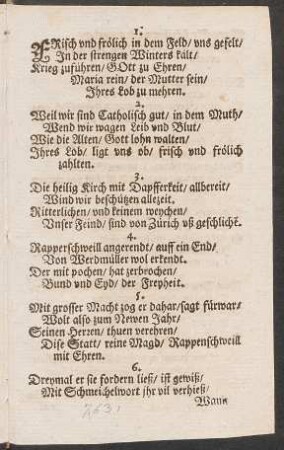 1.
FRisch vnd frölich in dem Feld/ vns gefelt/
In der strengen Winters kält/
Krieg zuführen/ GOtt zu Ehren/
Maria rein/ der Mutter sein/
Ihres Lob zu mehren.
2.
Weil wir sind Catholisch gut/ in dem Muth/
Wend wir wagen Leib vnd Blut/
Wie die Alten/ Gott lohn walten/
Ihres Lob/ ligt vns ob/ frisch vnd frölich
zahlten.
3.
Die heilig Kirch mit Dapfferkeit/ allbereit/
Wind wir beschützen allezeit.
Ritterlichen/ vnd keinem weychen/
Vnser Feind/ sind von Zürich vß geschlicht.
4.
Rapperschweill angerendt/ auff ein End/
Von Werdmüller wol erkendt.
Der mit pochen/ hat zerbrochen/
Bund vnd Eyd/ der Freyheit.
5.
Mit grosser Macht zog er dahar/ sagt fürwar/
Wolt also zum Newen Jahr/
Seinen Herren/ thuen verehren/
Dise Statt/ reine Magd/ Rappenschweill
mit Ehren.
6.
Dreymal er sie fordern ließ/ ist gewiß/
Mit Schmeichelwort jhr vil verhieß/
Wann